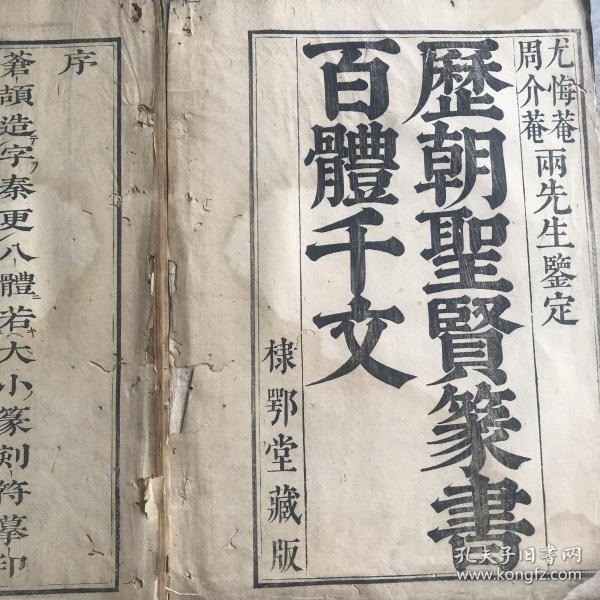 尤悔菴
周介菴
兩先生鑒定
歷朝聖賢篆書
百體千文
棣鄂堂藏版
序
蒼頡造字秦更八體若大小篆刻符摹印
孔夫子旧书网
www.kongfz.com